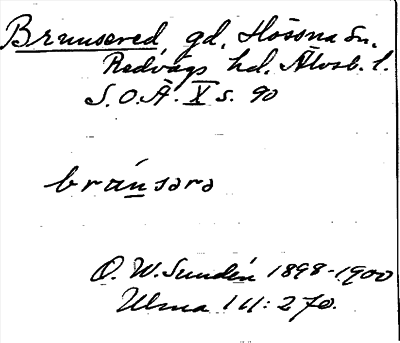 Brunsered, gd, Hössna sn,
Redvägs hd. Älvsb. l.
S.O.Ä. X s. 90
bransərə
O. W. Sundén 1898-1900
Ulma 111:270.